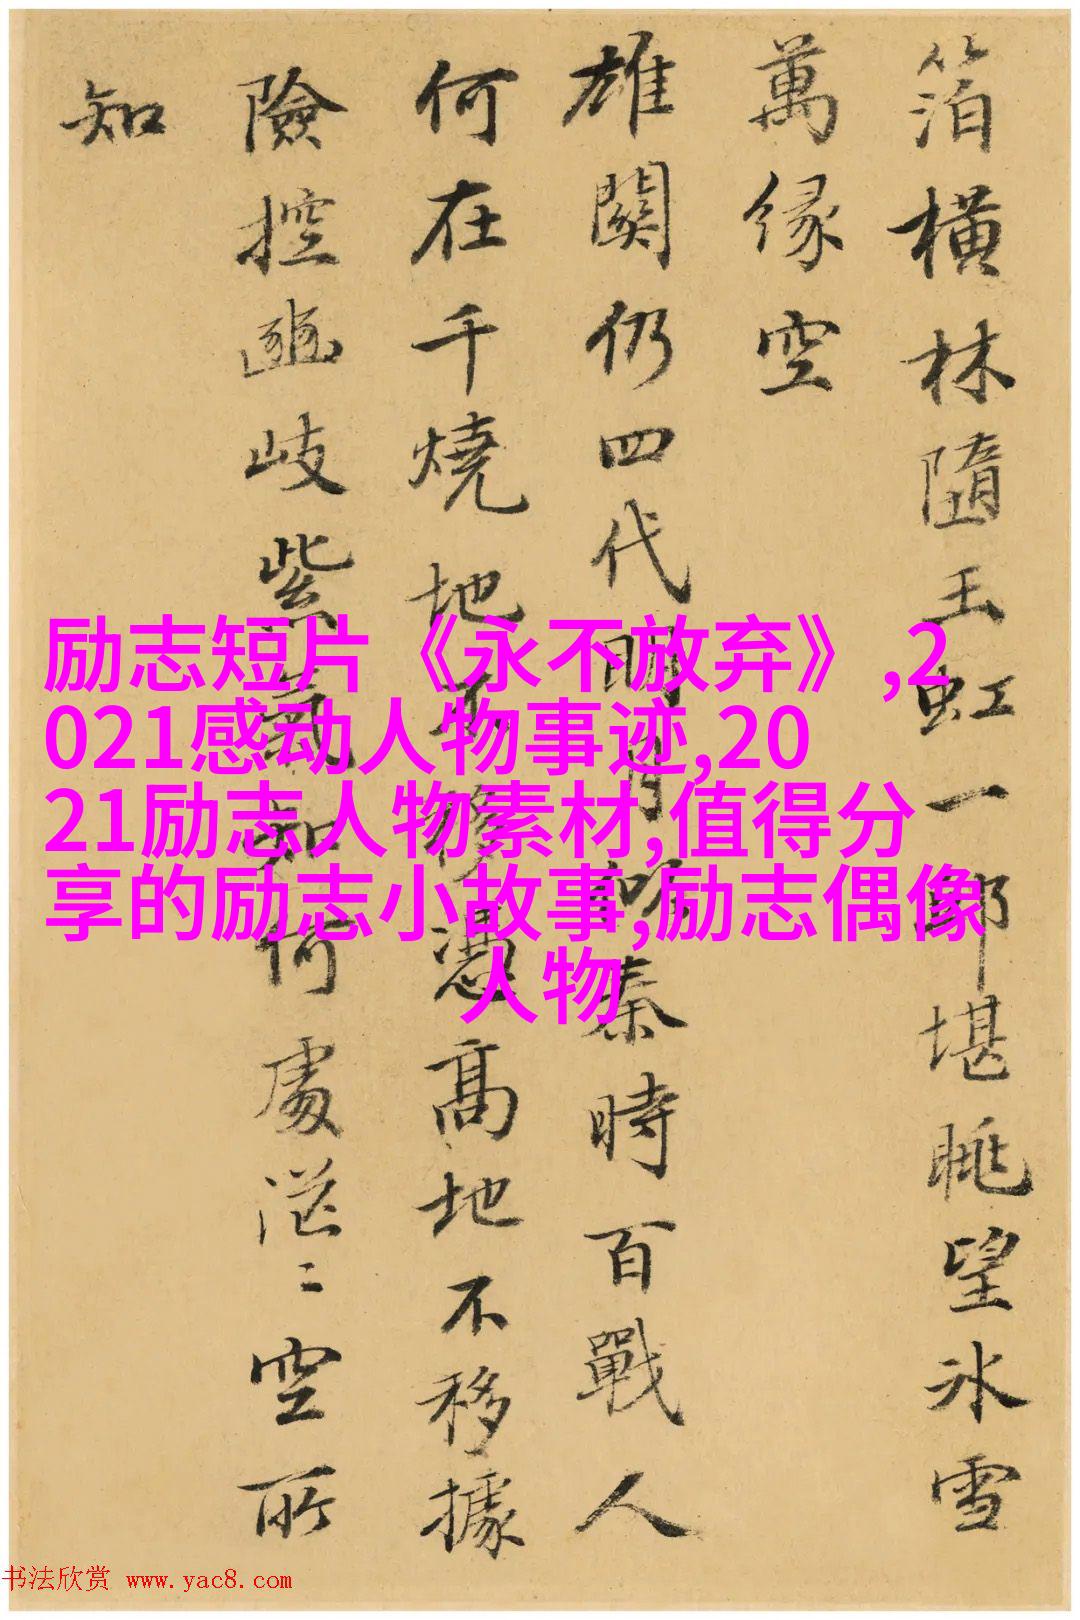 箔橫林隨玉虹一郎堪眺望冰雪
萬緣空
雄關仍四代明月似秦時百戰人
何在千燒地不移憑高地不移據
險控豳岐紫氣知何處茫〻空所
知
励志短片《永不放弃》,2
021感动人物事迹,20
21励志人物素材,值得分
享的励志小故事,励志偶像
人物
书法欣赏 www.yac8.com